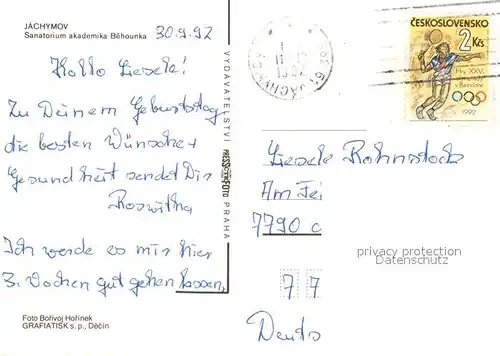 JÁCHYMOV
Sanatorium akademika Běhounka
30.9.92
Hallo Gisela!
Zu Deinem Geburtstag
die besten Wünsche +
Gesundheit sendet Dir
Roswitha
Ich werde es mir hier
3 Wochen gut gehen lassen.
Foto Bořivoj Hořínek
GRAFIATISK s. p., Děčín
VYDAVATELSTVÍ PRESSFOTO PRAHA
ČESKOSLOVENSKO
2 Kčs
Hry XXV.
v Barceloně
1992
Am
7790 c
privacy protection
Datenschutz
7 7